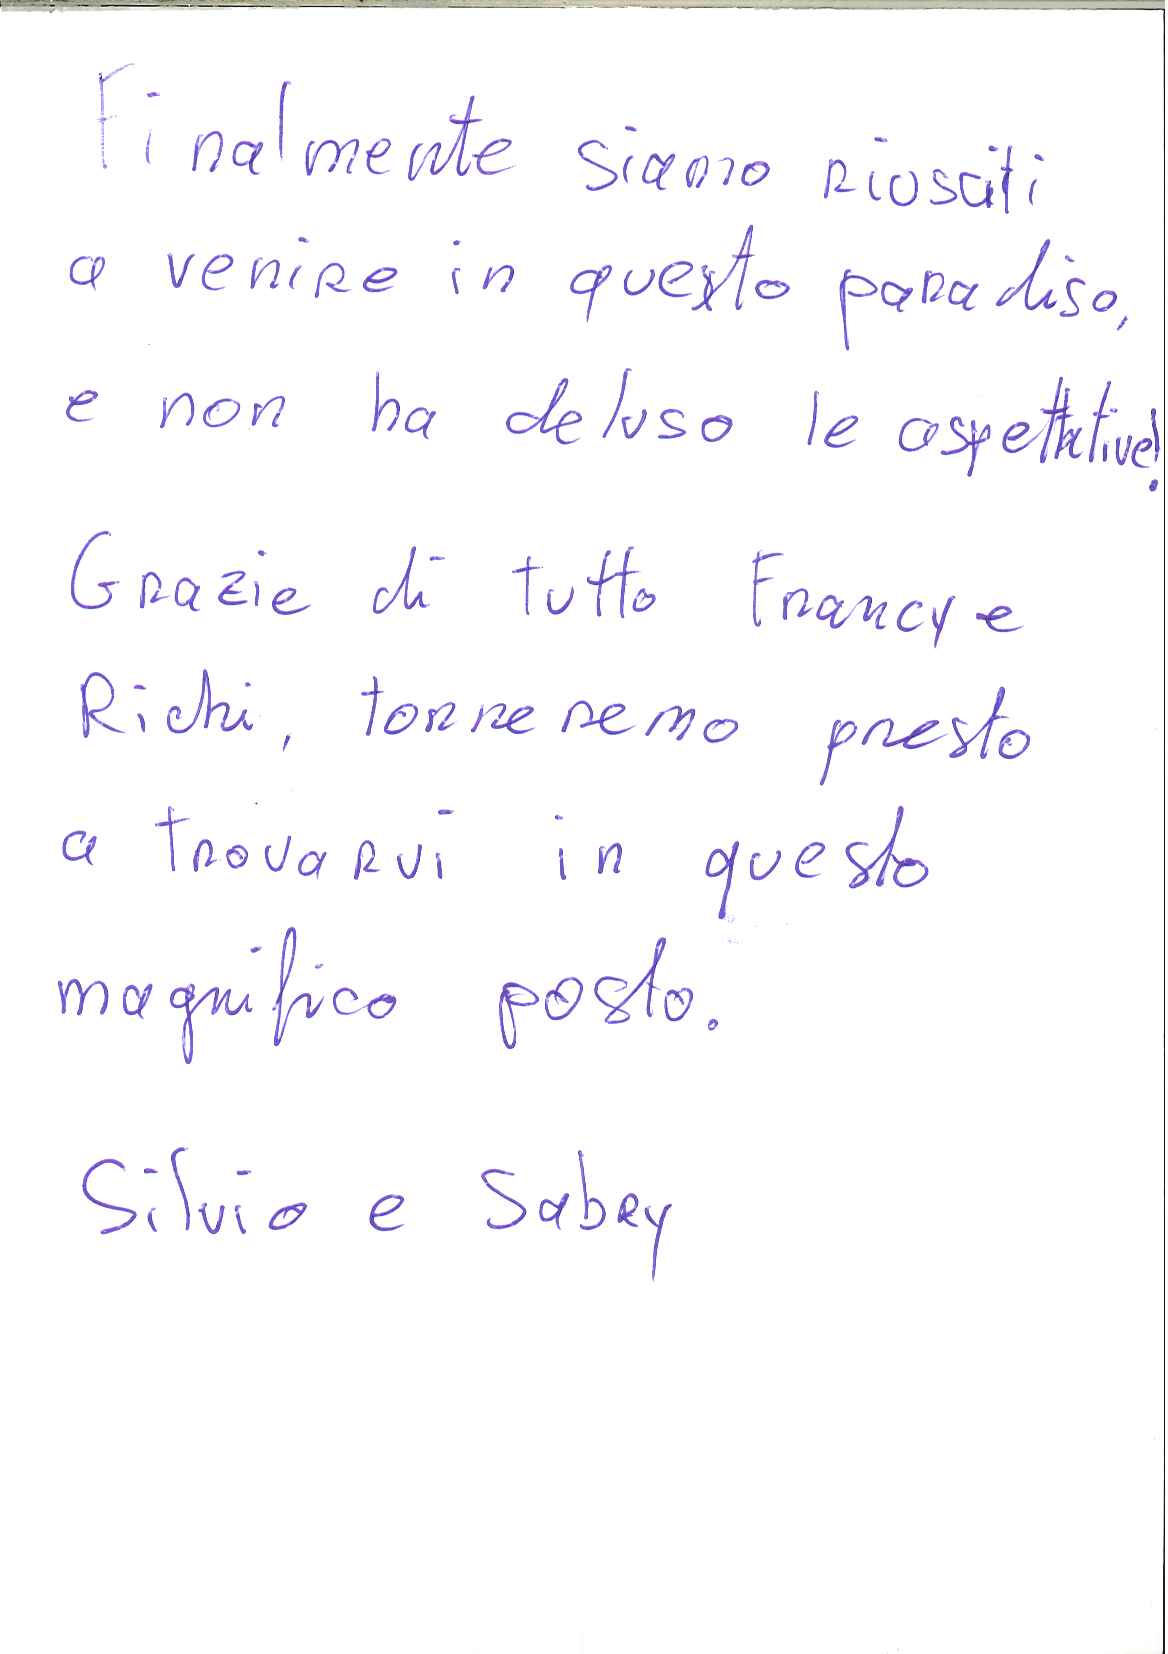 Finalmente siamo riusciti
a venire in questo paradiso,
e non ha deluso le aspettative!
Grazie di tutto Francy e
Richi, torneremo presto
a trovarvi in questo
magnifico posto.
Silvio e Sabry